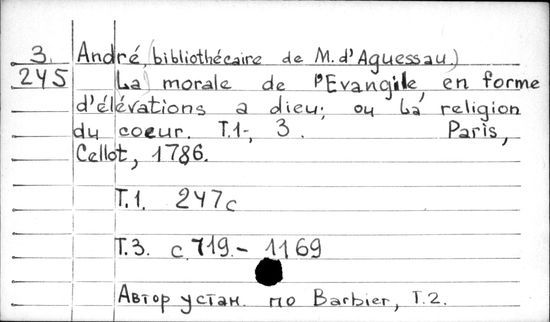 3. André, (bibliothécaire de M. d'Aguessau.)
245 La morale de l'Evangile, en forme
d'élévations a dieu; ou La religion
du coeur. T.1-, 3. Paris,
Cellot, 1786.
T.1. 247c
T.3. c. 719 - 1169
Автор устан. по Barbier, T.2.